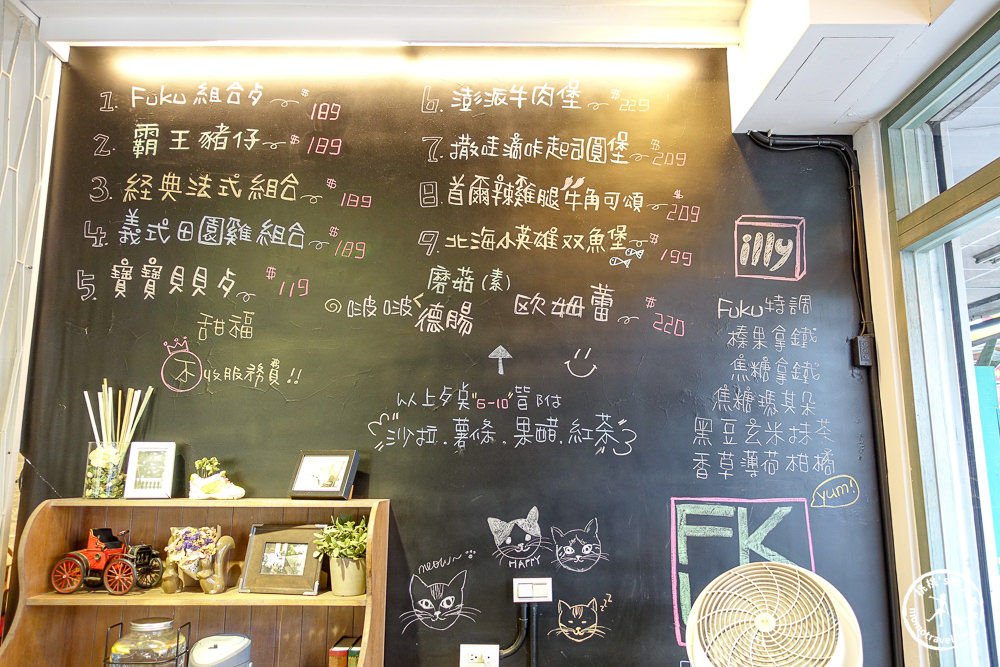 1. Fuku 組合夕 $189
2. 霸王豬仔 $189
3. 經典法式組合 $189
4. 義式田園雞組合 $189
5. 寶寶貝貝夕 $119
甜福
不收服務費!!
6. 澎派牛肉堡 $229
7. 撒哇滴咔起司圓堡 $209
8. 首爾辣雞腿牛角可頌 $209
9. 北海小英雄双魚堡 $199
磨菇(素)
啵啵 德腸
歐姆蕾 $220
以上夕奌"6-10"皆附
沙拉.薯條.果醋.紅茶
illy
Fuku特調
榛果拿鐵
焦糖拿鐵
焦糖瑪其朵
黑豆玄米抹茶
香草薄荷柑橘
yum!
FK
meow
HAPPY
zzz